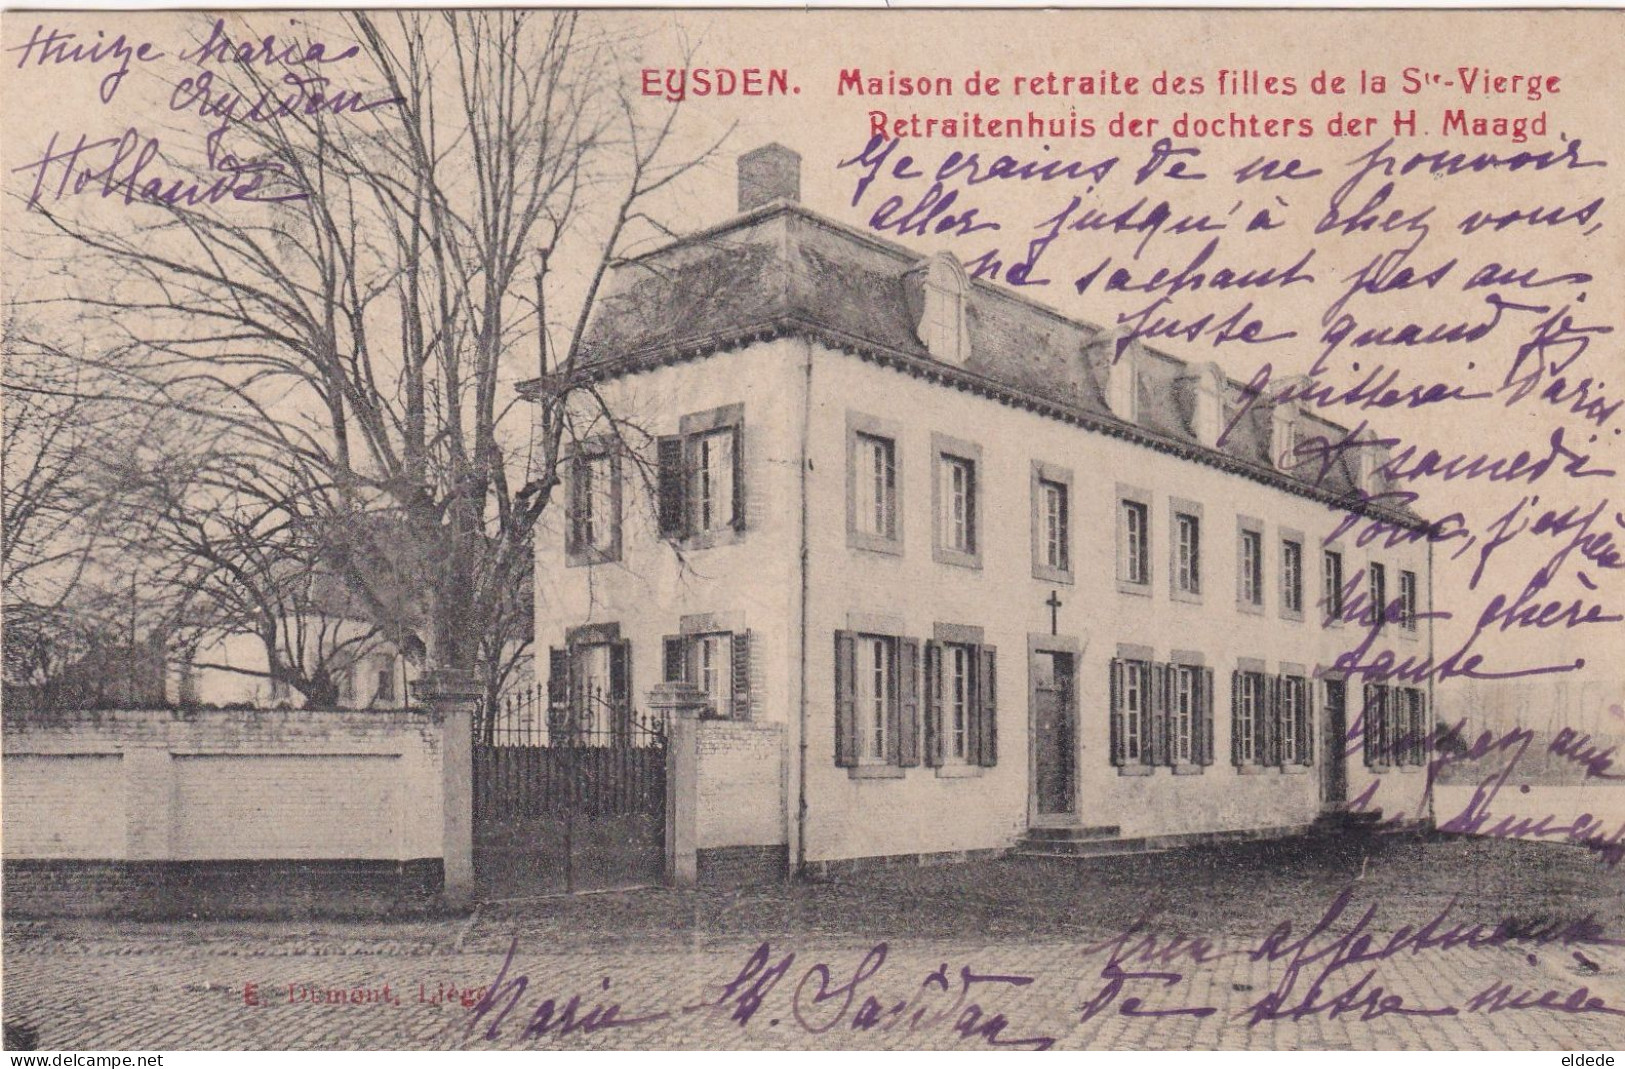 Huize Maria
Eysden
Hollande
EYSDEN. Maison de retraite des filles de la Ste-Vierge
Retraitenhuis der dochters der H. Maagd
Je crains de ne pouvoir
aller jusqu'à chez vous,
ne sachant pas au
juste quand je
quitterai Paris.
A samedi
donc, j'espère
ma chère
tante.
Croyez aux
sentiments
bien affectueux
de votre nièce
Marie
E. Dumont, Liége
eldede
delcampe.net